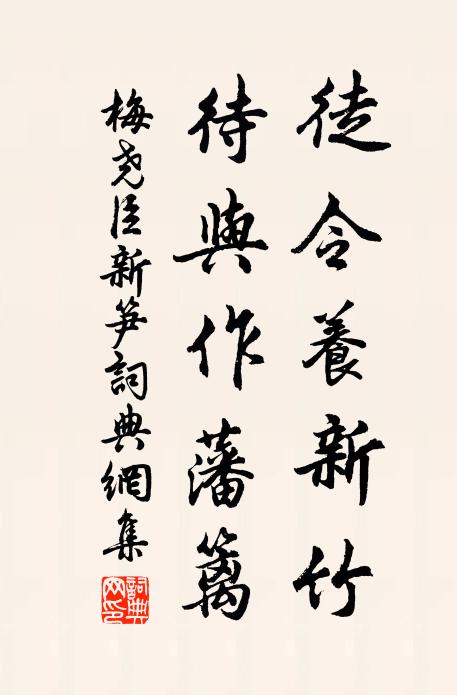 徒令養新竹
待與作藩籬
梅堯臣新笋詞典網集
詞典網印